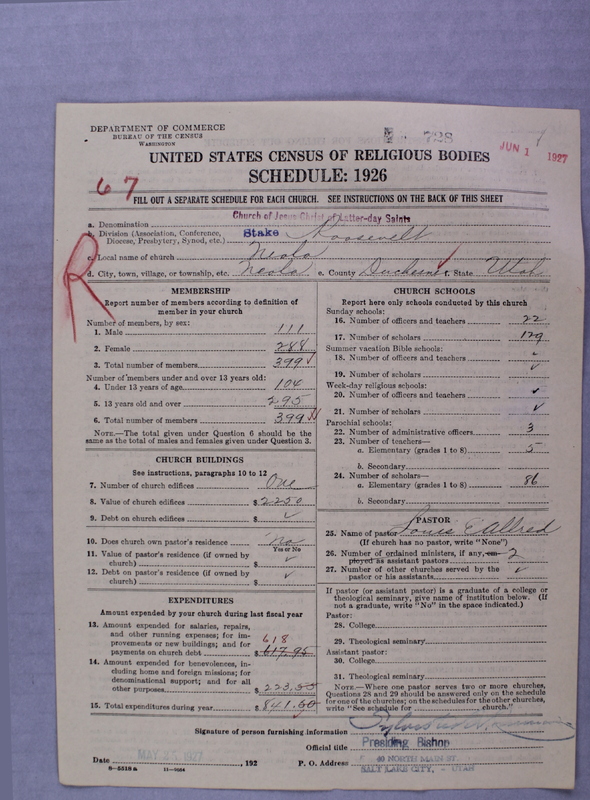 DEPARTMENT OF COMMERCE
BUREAU OF THE CENSUS
WASHINGTON
728
JUN 1 1927
UNITED STATES CENSUS OF RELIGIOUS BODIES
SCHEDULE: 1926
67
FILL OUT A SEPARATE SCHEDULE FOR EACH CHURCH. SEE INSTRUCTIONS ON THE BACK OF THIS SHEET
R
a. Denomination Church of Jesus Christ of Latter-day Saints
b. Division (Association, Conference, Diocese, Presbytery, Synod, etc.) Stake Roosevelt
c. Local name of church Neola
d. City, town, village, or township, etc. Neola e. County Duchesne f. State Utah
MEMBERSHIP
Report number of members according to definition of
member in your church
Number of members, by sex:
1. Male 111
2. Female 288
3. Total number of members 399
Number of members under and over 13 years old:
4. Under 13 years of age 104
5. 13 years old and over 295
6. Total number of members 399
NOTE.—The total given under Question 6 should be the
same as the total of males and females given under Question 3.
CHURCH BUILDINGS
See instructions, paragraphs 10 to 12
7. Number of church edifices One
8. Value of church edifices $ 2250
9. Debt on church edifices $
10. Does church own pastor's residence No
Yes or No
11. Value of pastor's residence (if owned by
church) $
12. Debt on pastor's residence (if owned by
church) $
EXPENDITURES
Amount expended by your church during last fiscal year
13. Amount expended for salaries, repairs,
and other running expenses; for im-
provements or new buildings; and for
payments on church debt $ 617.95 618
14. Amount expended for benevolences, in-
cluding home and foreign missions; for
denominational support; and for all
other purposes $ 223.55
15. Total expenditures during year $ 841.50
CHURCH SCHOOLS
Report here only schools conducted by this church
Sunday schools:
16. Number of officers and teachers 22
17. Number of scholars 129
Summer vacation Bible schools:
18. Number of officers and teachers
19. Number of scholars
Week-day religious schools:
20. Number of officers and teachers
21. Number of scholars
Parochial schools:
22. Number of administrative officers 3
23. Number of teachers—
a. Elementary (grades 1 to 8) 5
b. Secondary
24. Number of scholars—
a. Elementary (grades 1 to 8) 86
b. Secondary
PASTOR
25. Name of pastor Louis E Allred
(If church has no pastor, write "None")
26. Number of ordained ministers, if any, em-
ployed as assistant pastors 2
27. Number of other churches served by the
pastor or his assistants
If pastor (or assistant pastor) is a graduate of a college or
theological seminary, give name of institution below. (If
not a graduate, write "No" in the space indicated.)
Pastor:
28. College
29. Theological seminary
Assistant pastor:
30. College
31. Theological seminary
NOTE.—Where one pastor serves two or more churches,
Questions 28 and 29 should be answered only on the schedule
for one of the churches; on the schedules for the other churches,
write "See schedule for church."
Signature of person furnishing information
Official title Presiding Bishop
Date MAY 1927 , 192 P. O. Address 40 NORTH MAIN ST
SALT LAKE CITY, - UTAH
8—5518a